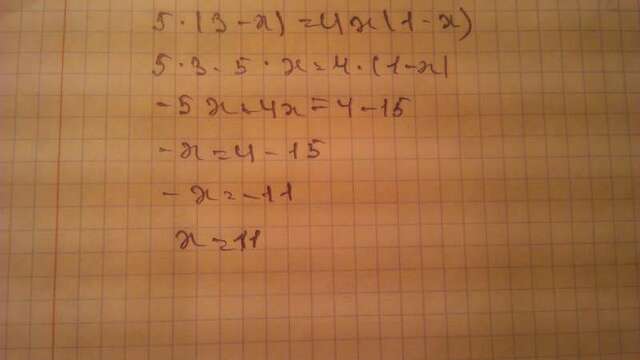 5·(3-x)=4x(1-x)
5·3-5·x=4·(1-x)
-5x+4x=4-15
-x=4-15
-x=-11
x=11